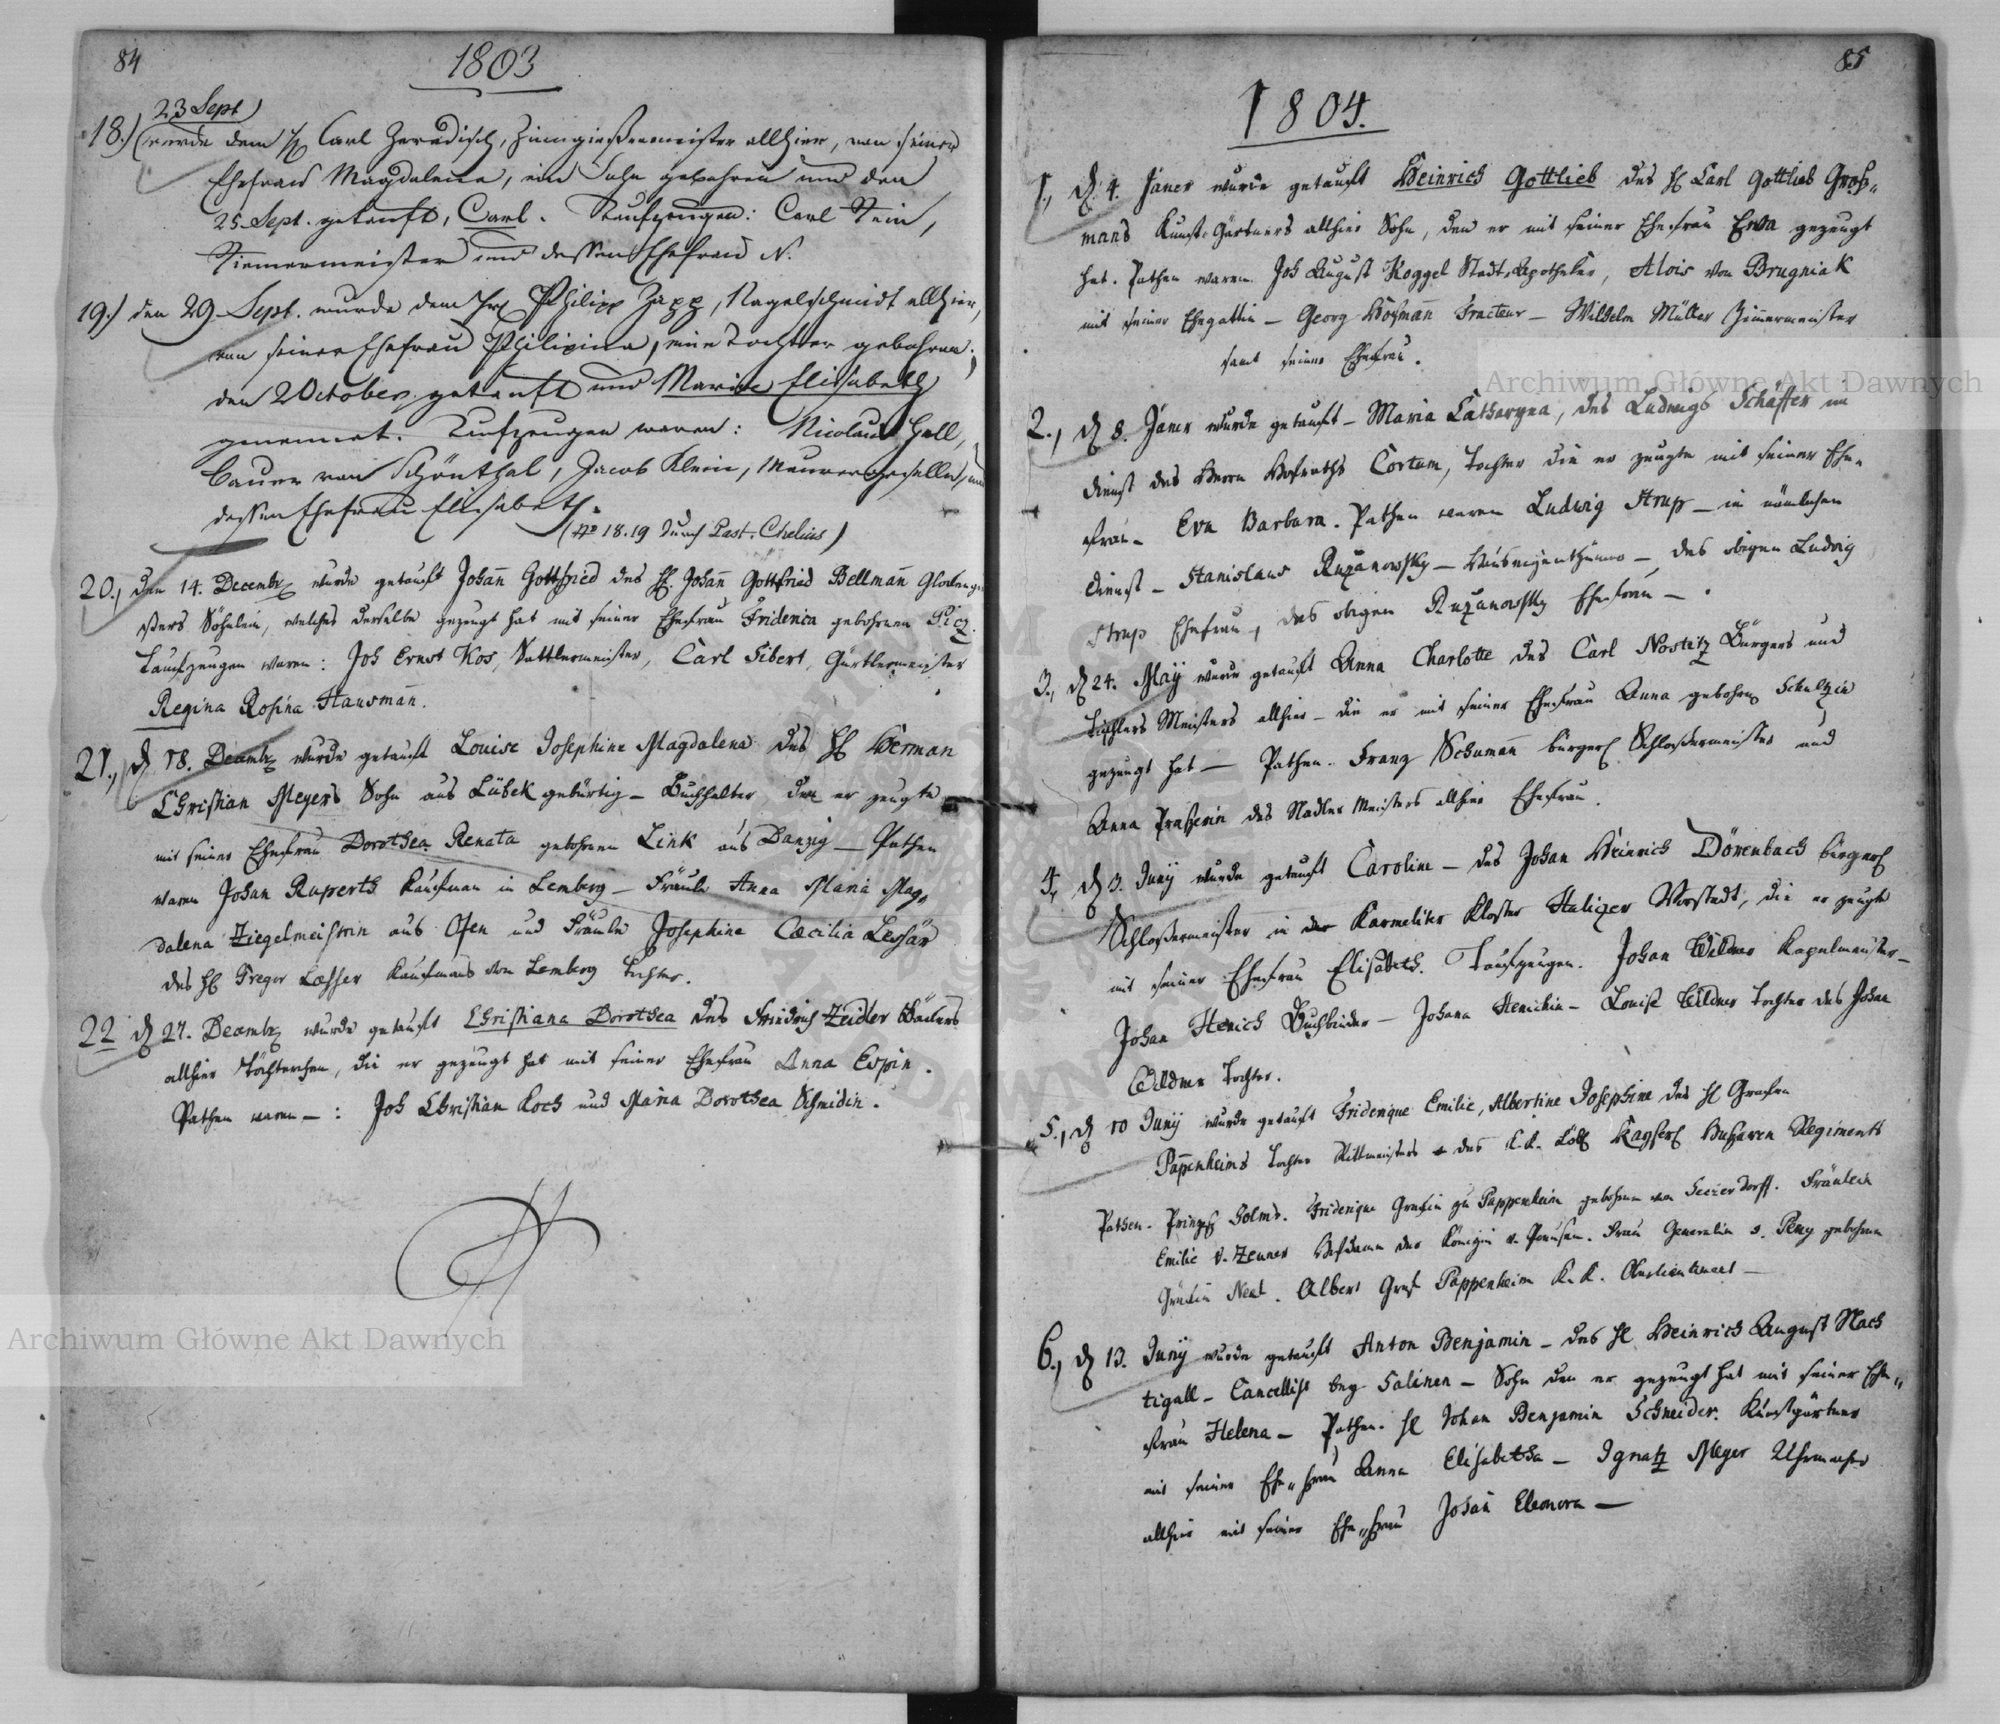 84
1803
23 Sept
18.) wurde dem H Carl Zeradisch, Zinngießermeister allhier, von seiner
Ehefrau Magdalena, ein Sohn gebohren und den
25 Sept. getauft, Carl. Taufzeugen: Carl Stein,
Riemermeister und dessen Ehefrau N.
19.) den 29. Sept. wurde dem Philipp Zapp, Nagelschmidt allhier,
von seiner Ehefrau Philipina, eine Tochter gebohren,
den 2 October getauft und Maria Elisabeth
genennet. Taufzeugen waren: Nicolaus Hell,
Bauer von Schönthal, Jacob Klein, Maurergeselle, und
dessen Ehefrau Elisabeth.
(No 18.19 durch Past. Chelius)
20., den 14. Decembr wurde getauft Johan Gottfried des H. Johan Gottfried Bellman Glockengi
eßers Söhnlein, welches derselbe gezeugt hat mit seiner Ehefrau Friderica gebohrnen Picz.
Taufzeugen waren: Joh Ernst Kos, Sattlermeister, Carl Sibert, Gürtlermeister
Regina Rosina Hausman.
21., d 18. Decembr wurde getauft Louise Josephine Magdalena des H Herman
Christian Meyers Sohn aus Lübek gebürtig – Buchhalter, den er zeugte
mit seiner Ehefrau Dorothea Renata gebohrnen Link aus Danzig – Pathen
waren Johan Ruperth Kaufman in Lemberg – Fräule Anna Maria Mag,
dalena Ziegelmeistrin aus Ofen und Fräule Josephine Cæcilia Lessär
des H Gregor Læsser Kaufmans von Lemberg Tochter.
22 d 27. Decembr wurde getauft Christiana Dorothea des Friedrich Zeidler Bäckers
allhier Töchterchen, die er gezeugt hat mit seiner Ehefrau Anna Espin.
Pathen waren – : Joh Christian Koch und Maria Dorothea Schmidin.
85
1804.
1., d. 4. Jäner wurde getauft Heinrich Gottlieb des H Carl Gottlieb Groß„
mans Kunst-Gärtners allhier Sohn, den er mit seiner Ehefrau Ewa gezeugt
hat. Pathen waren Joh August Koggel Stadt-Apotheker, Alois von Brugniak
mit seiner Ehegattin – Georg Hofman Tracteur – Wilhelm Müller Zimmermeister
samt seiner Ehefrau.
2., d 8. Jäner wurde getauft – Maria Catharyna, des Ludwigs Schäffer im
Dienst des Herrn Hofraths Cortum, Tochter die er zeugte mit seiner Ehe„
frau – Eva Barbara. Pathen waren Ludwig Strup – in nämlichen
Dienst – Stanislaus Ruzanowsky – Hauseigenthümer – des obigen Ludwig
Strup Ehefrau, des obigen Ruzanowsky Ehefrau – .
3., d 24. May wurde getauft Anna Charlotte des Carl Nostitz Bürgers und
Tischlers Meisters allhier – die er mit seiner Ehefrau Anna gebohrn Schultzin
gezeugt hat – Pathen. Franz Schuman bürgerl Schloßermeister und
Anna des Nadler Meisters allhier Ehefrau.
4, d 3. Juny wurde getauft Caroline – des Johan Heinrich Dörenbach bürgerl
Schloßermeister in der Karmeliter Kloster Halizer Vorstadt, die er zeugte
mit seiner Ehefrau Elisabeth. Taufzeugen. Johan Wildner Kapelmeister –
Johan Henich Buchbinder – Johana Henichin – Louise Wildner Tochter des Johan
Wildner Tochter.
5., d 10 Juny wurde getauft Friderique Emilie, Albertine Josephine des H Grafen
Pappenheims Tochter Rittmeisters des K.K. Löbl Kayserl Husaren Regiments
Pathen. Prinzeß Solms. Friderique Gräfin zu Pappenheim gebohrne von Seckerdorff. Fräulein
Emilie v. Zeuner Hofdame der Königin v. Preussen. Frau Generalin v. gebohrne
Gräfin Albert Graf Pappenheim K.K. Oberlieutenant –
6., d 13. Juny wurde getauft Anton Benjamin – des H Heinrich August Nach
tigall – Cancellist bey Salinen – Sohn den er gezeugt hat mit seiner Ehe„
frau Helena – Pathen. H Johan Benjamin Schneider. Kunstgärtner
mit seiner Ehe„frau Anna Elisabetha – Ignatz Meyer Uhrmacher
allhier mit seiner Ehe„frau Johan Eleonora –
Archiwum Główne Akt Dawnych
Archiwum Główne Akt Dawnych